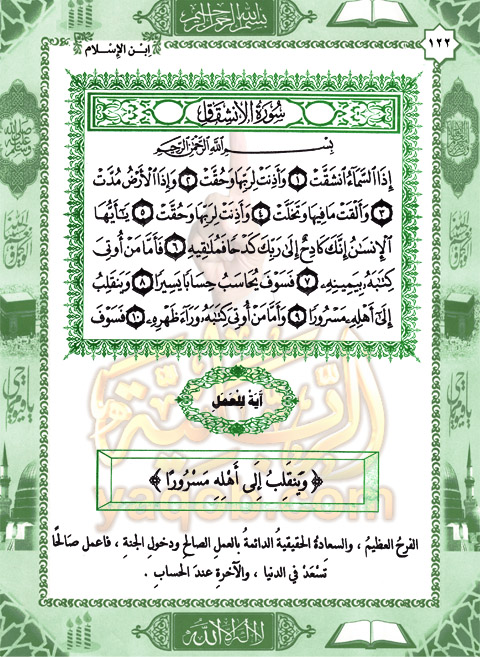 بسم الله الرحمن الرحيم
ابن الإسلام
١٢٢
سُورَةُ الإِنشِقَاقِ
بِسْمِ اللَّهِ الرَّحْمَٰنِ الرَّحِيمِ
إِذَا السَّمَاءُ انشَقَّتْ ١ وَأَذِنَتْ لِرَبِّهَا وَحُقَّتْ ٢ وَإِذَا الْأَرْضُ مُدَّتْ
٣ وَأَلْقَتْ مَا فِيهَا وَتَخَلَّتْ ٤ وَأَذِنَتْ لِرَبِّهَا وَحُقَّتْ ٥ يَٰأَيُّهَا
الْإِنسَٰنُ إِنَّكَ كَادِحٌ إِلَىٰ رَبِّكَ كَدْحًا فَمُلَٰقِيهِ ٦ فَأَمَّا مَنْ أُوتِيَ
كِتَٰبَهُ بِيَمِينِهِ ٧ فَسَوْفَ يُحَاسَبُ حِسَابًا يَسِيرًا ٨ وَيَنقَلِبُ
إِلَىٰ أَهْلِهِ مَسْرُورًا ٩ وَأَمَّا مَنْ أُوتِيَ كِتَٰبَهُ وَرَاءَ ظَهْرِهِ ١٠ فَسَوْفَ
آيَةٌ لِلْعَمَلِ
﴿ وَيَنقَلِبُ إِلَى أَهْلِهِ مَسْرُورًا ﴾
yaqob.com
الفرحُ العظيمُ ، والسعادةُ الحقيقيةُ الدائمةُ بالعملِ الصالحِ ودخولِ الجنةِ ، فاعمل صَالحًا
تَسْعَدْ في الدنيا ، والآخرةِ عندَ الحسابِ .
لا إله إلا الله